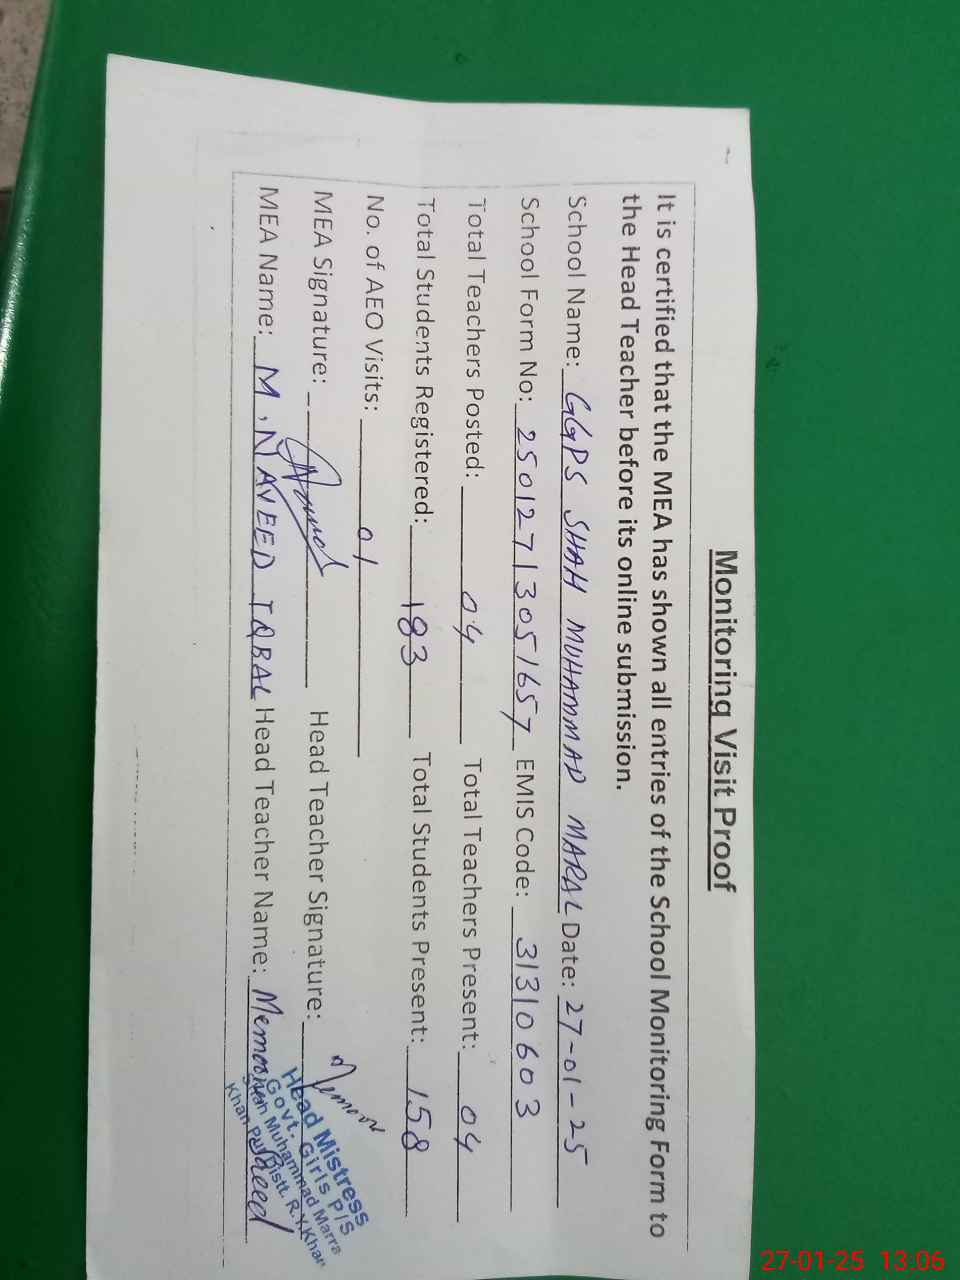 Monitoring Visit Proof
It is certified that the MEA has shown all entries of the School Monitoring Form to
the Head Teacher before its online submission.
School Name: GGPS SHAH MUHAMMAD MARAL Date: 27-01-25
School Form No: 25012713051657 EMIS Code: 31310603
Total Teachers Posted: 04 Total Teachers Present: 04
Total Students Registered: 183 Total Students Present: 158
No. of AEO Visits: 01
MEA Signature: Head Teacher Signature:
MEA Name: M. NAVEED IQBAL Head Teacher Name:
Head Mistress
Govt. Girls P/S
Shah Muhammad Marra
Khan Pur Distt. R.Y.Khan
27-01-25 13:06